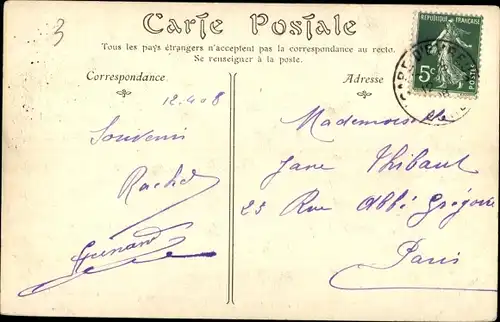 3
Carte Postale
RÉPUBLIQUE FRANÇAISE
5c
POSTES
Tous les pays étrangers n'acceptent pas la correspondance au recto.
Se renseigner à la poste.
Correspondance
Adresse
12.4.08
Souvenir
Rachel
Guénard
Mademoiselle
Jane Thibaut
25 Rue Abbé Grégoire
Paris